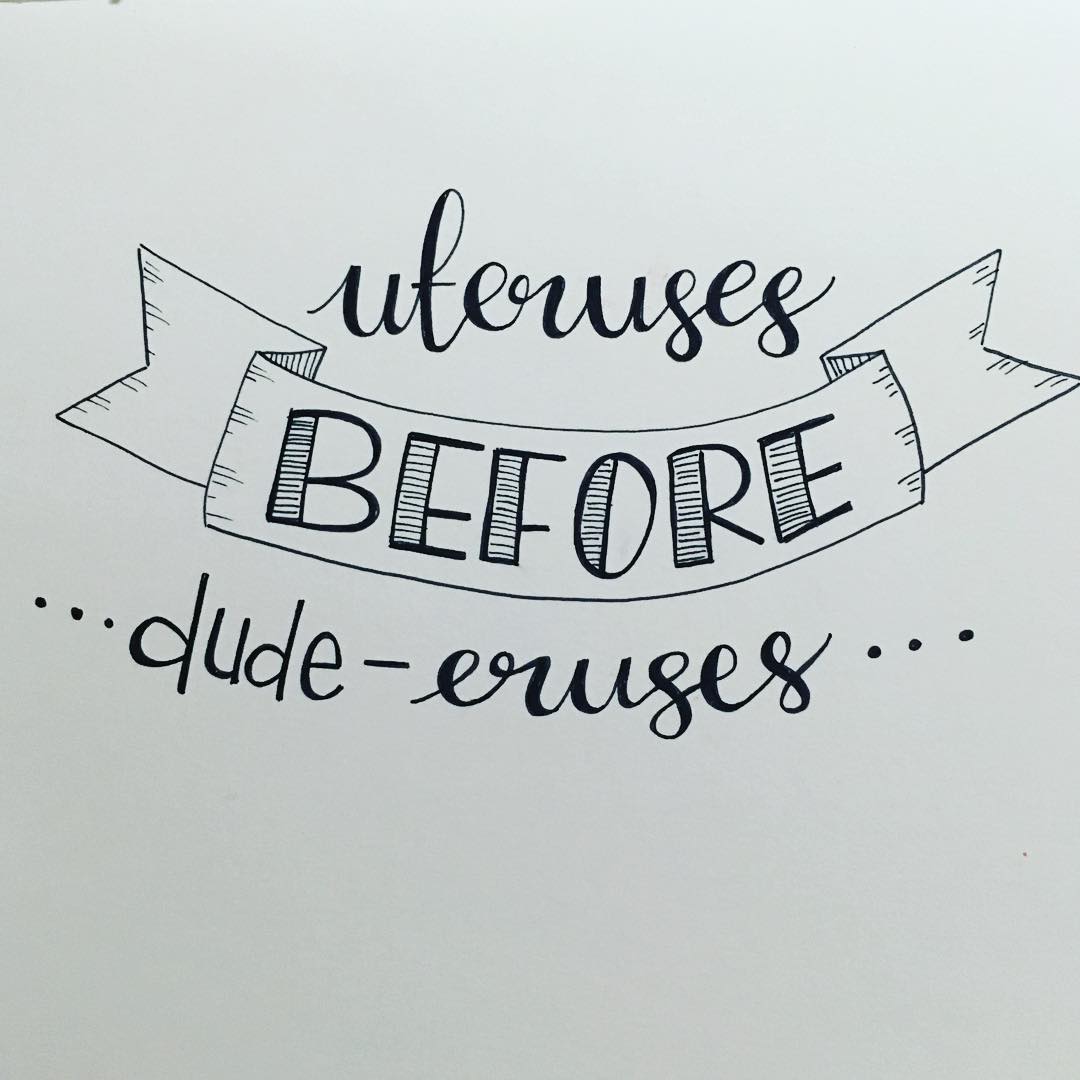 uteruses
BEFORE
...dude-eruses...